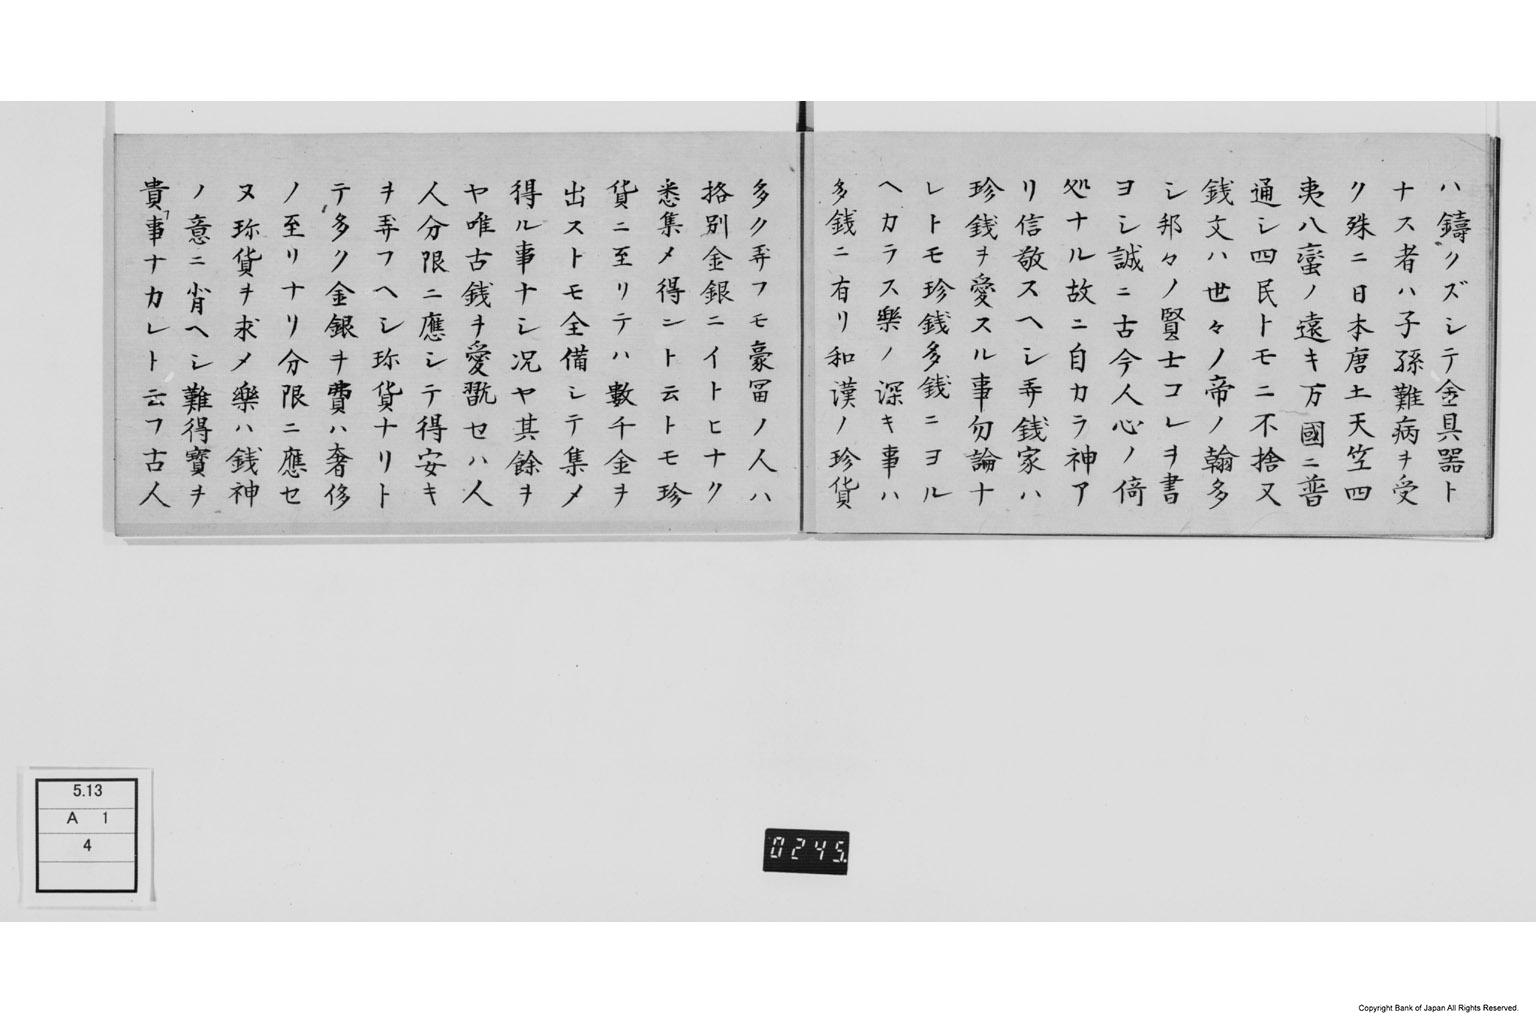 ハ鑄クズシテ金具器ト
ナス者ハ子孫難病ヲ受
ク殊ニ日本唐土天竺四
夷八蛮ノ遠キ万國ニ普
通シ四民トモニ不捨又
銭文ハ世々ノ帝ノ翰多
シ邦々ノ賢士コレヲ書
ヨシ誠ニ古今人心ノ倚
処ナル故ニ自カラ神ア
リ信敬スヘシ弄銭家ハ
珍銭ヲ愛スル事勿論ナ
レトモ珍銭多銭ニヨル
ヘカラス樂ノ深キ事ハ
多銭ニ有リ和漢ノ珍貨
多ク弄フモ豪冨ノ人ハ
挌別金銀ニイトヒナク
悉集メ得ント云トモ珍
貨ニ至リテハ數千金ヲ
出ストモ全備シテ集メ
得ル事ナシ况ヤ其餘ヲ
ヤ唯古銭ヲ愛翫セハ人
人分限ニ應シテ得安キ
ヲ弄フヘシ珎貨ナリト
テ多ク金銀ヲ費ハ奢侈
ノ至リナリ分限ニ應セ
ヌ珎貨ヲ求メ樂ハ銭神
ノ意ニ背ヘシ難得寳ヲ
貴事ナカレト云フ古人
5.13
A 1
4
0245.
Copyright Bank of Japan All Rights Reserved.